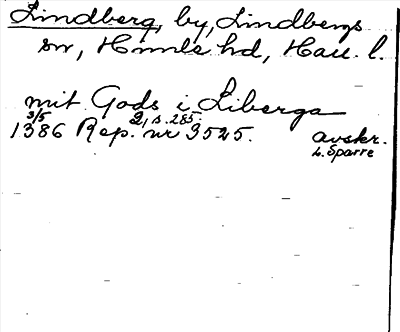 Lindberg, by, Lindbergs
sn, Himle hd, Hall. l.
mit Gods i Liberga
3/5 2, s. 285.
1386 Rep. nr 3525. avskr.
L. Sparre